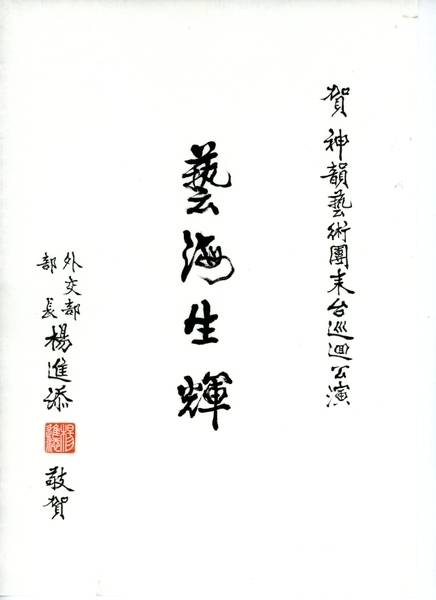 賀神韻藝術團来台巡迴公演
藝海生輝
外交部
部長楊進添
楊進添
敬賀